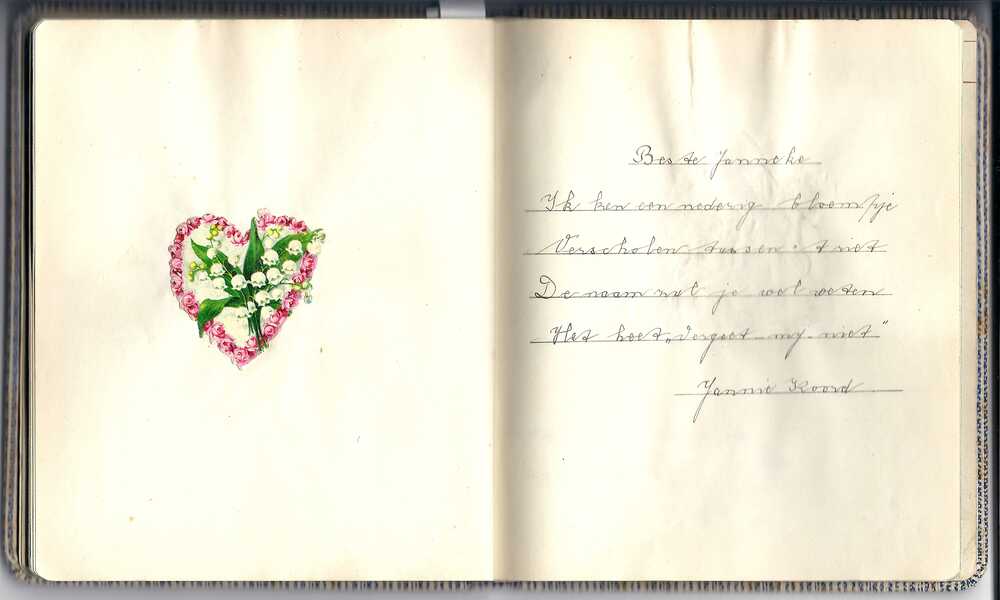 Beste Janneke
Ik ken een nederig bloempje
Verscholen tussen 't riet
De naam zul je wel weten
Het heet „Vergeet my niet"
Jannie Koord